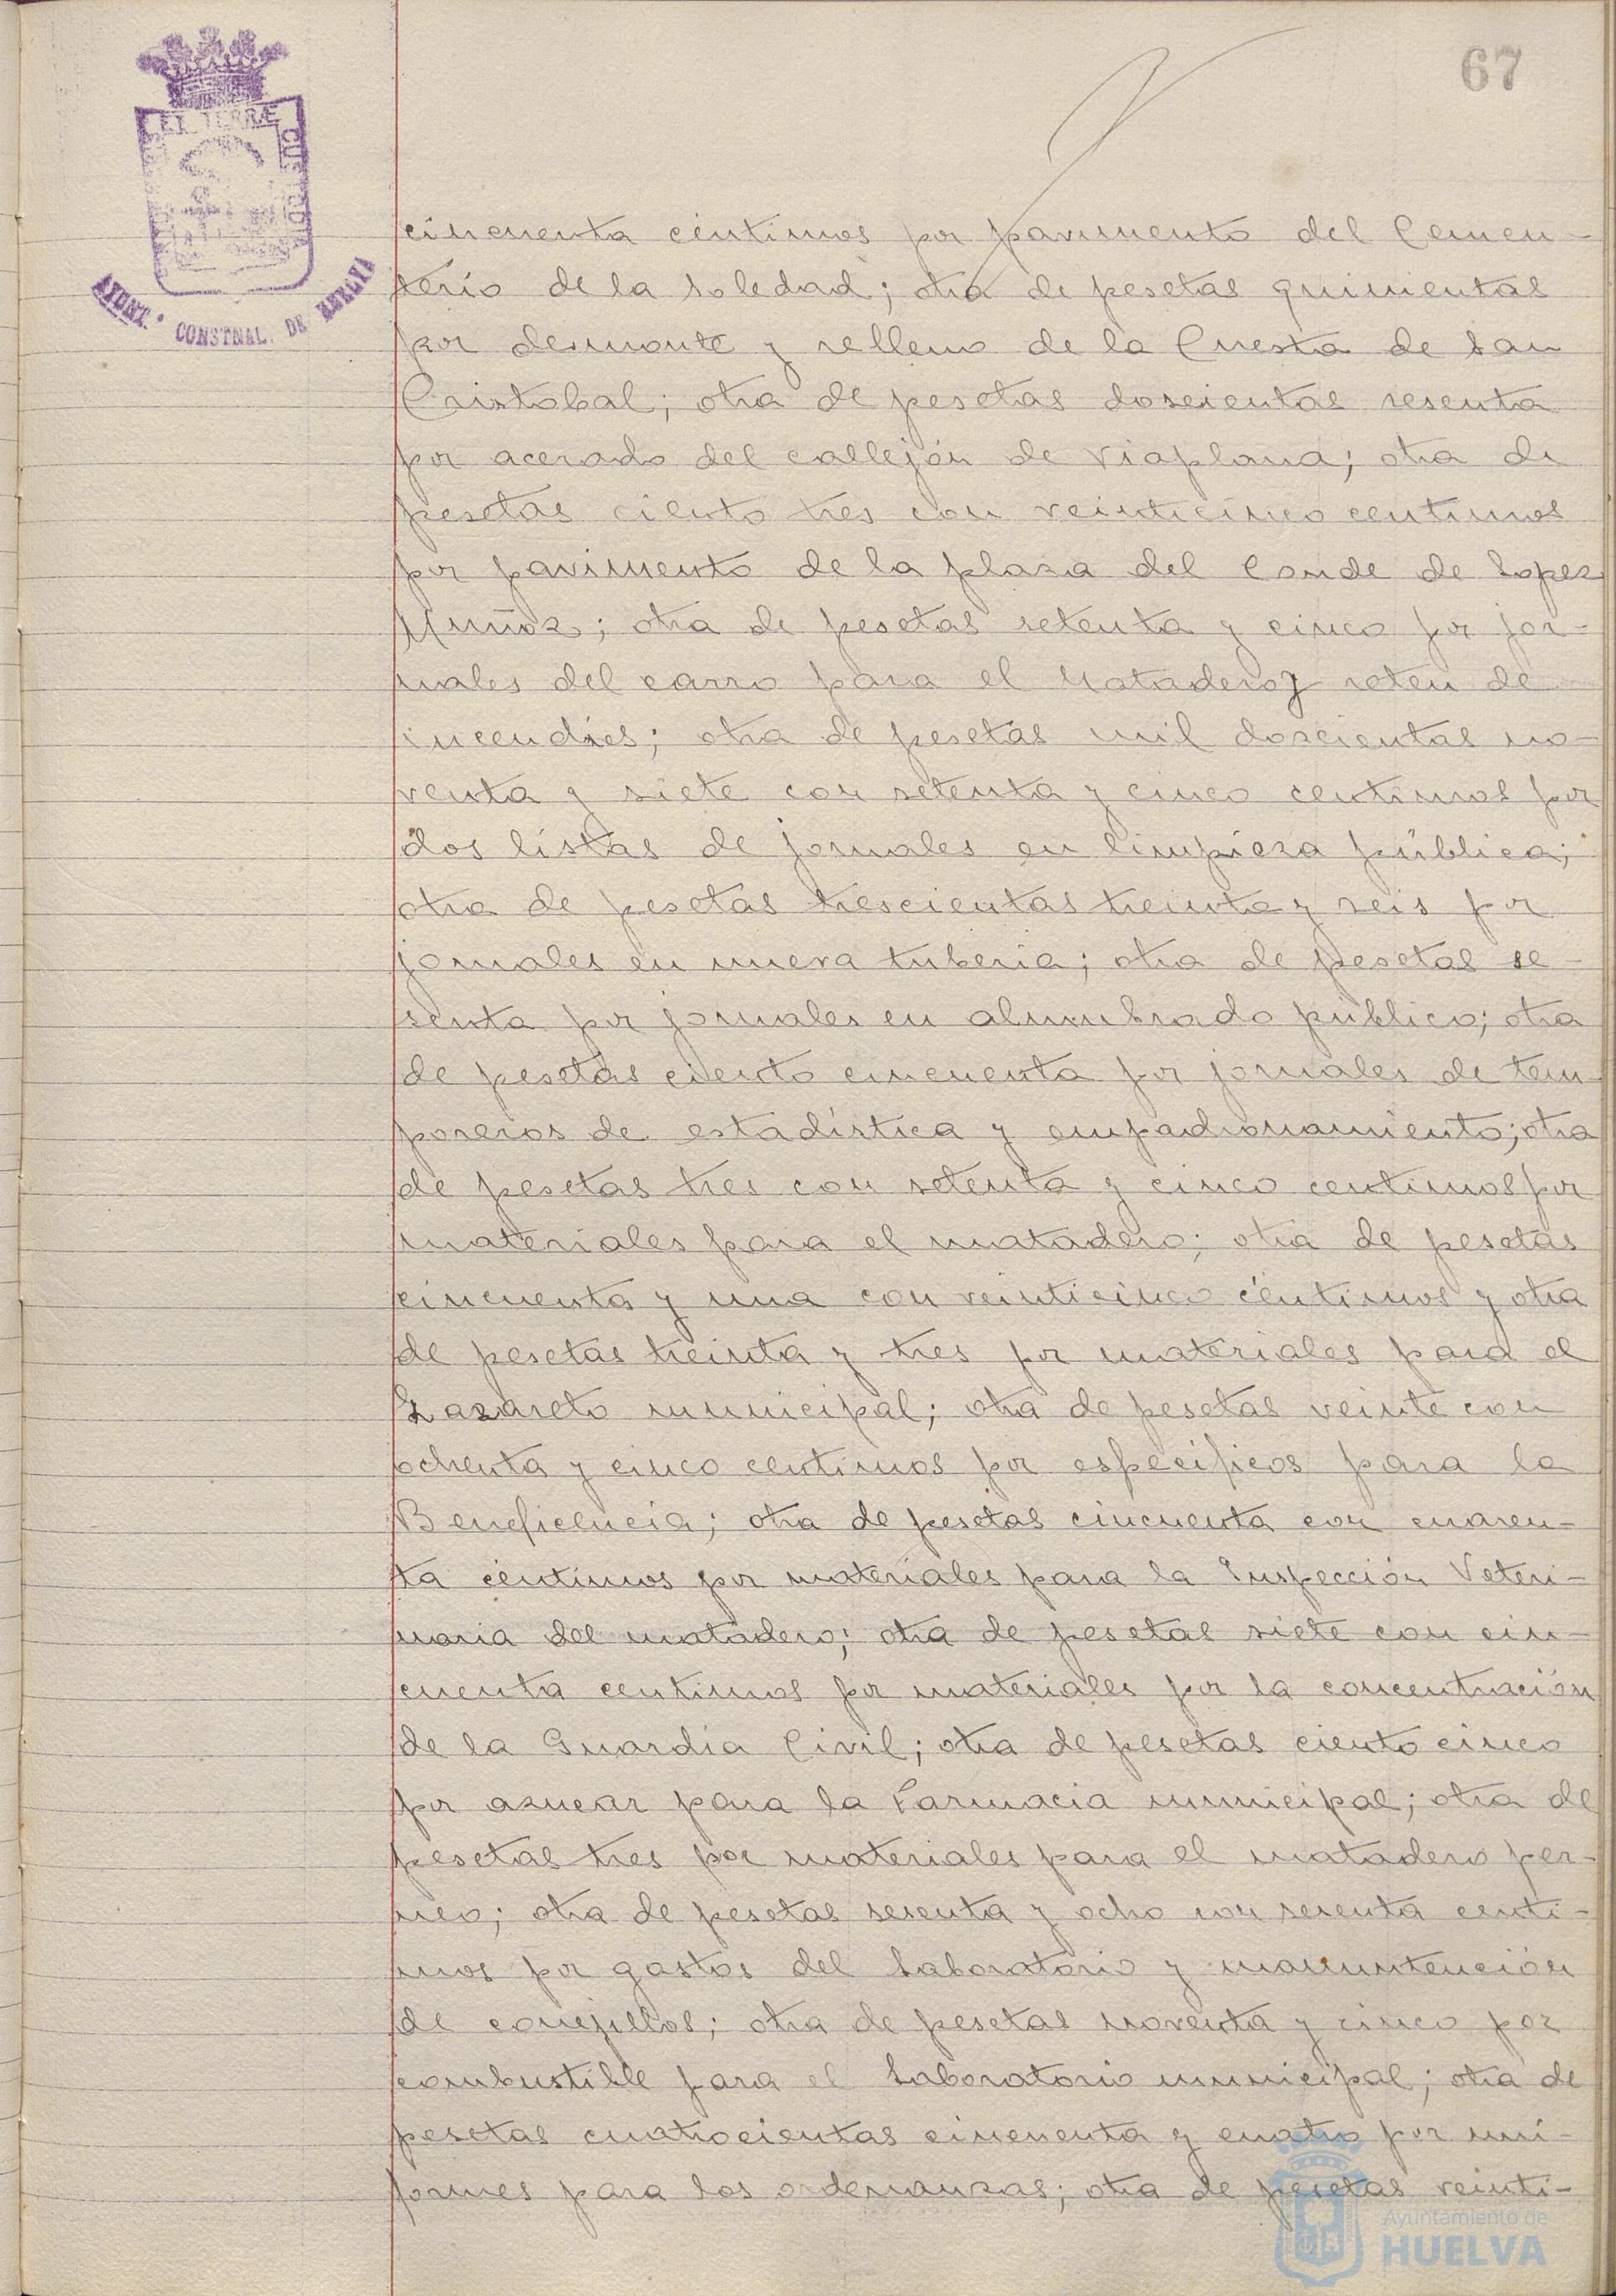 67
ET TERRÆ
CUSTODIA
AYUNT. CONSTNAL. DE HUELVA
cincuenta céntimos por pavimento del Cemen-
terio de la Soledad; otra de pesetas quinientas
por desmonte y relleno de la Cuesta de San
Cristobal; otra de pesetas doscientas sesenta
por acerado del callejón de Viaplana; otra de
pesetas ciento tres con veinticinco centimos
por pavimento de la plaza del Conde de Lopez
Muñoz; otra de pesetas setenta y cinco por jor-
nales del carro para el Matadero y reten de
incendios; otra de pesetas mil doscientas no-
venta y siete con setenta y cinco centimos por
dos listas de jornales en limpieza pública;
otra de pesetas trescientas treinta y seis por
jornales en nueva tuberia; otra de pesetas se-
senta por jornales en alumbrado público; otra
de pesetas ciento cincuenta por jornales de tem-
poreros de estadística y empadronamiento; otra
de pesetas tres con setenta y cinco centimos por
materiales para el matadero; otra de pesetas
cincuenta y una con veinticinco céntimos y otra
de pesetas treinta y tres por materiales para el
Lazareto municipal; otra de pesetas veinte con
ochenta y cinco centimos por especificos para la
Beneficencia; otra de pesetas cincuenta con cuaren-
ta céntimos por materiales para la Inspección Veteri-
naria del matadero; otra de pesetas siete con cin-
cuenta centimos por materiales por la concentración
de la Guardia Civil; otra de pesetas ciento cinco
por azucar para la Farmacia municipal; otra de
pesetas tres por materiales para el matadero per-
neo; otra de pesetas sesenta y ocho con sesenta centi-
mos por gastos del Laboratorio y manuntención
de conejillos; otra de pesetas noventa y cinco por
combustible para el Laboratorio municipal; otra de
pesetas cuatrocientas cincuenta y cuatro por uni-
formes para los ordenanzas; otra de pesetas veinti-
Ayuntamiento de
HUELVA